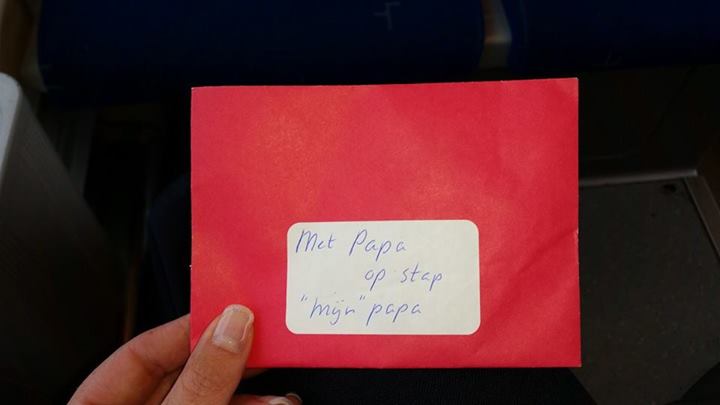 Met Papa
op stap
"mijn" papa